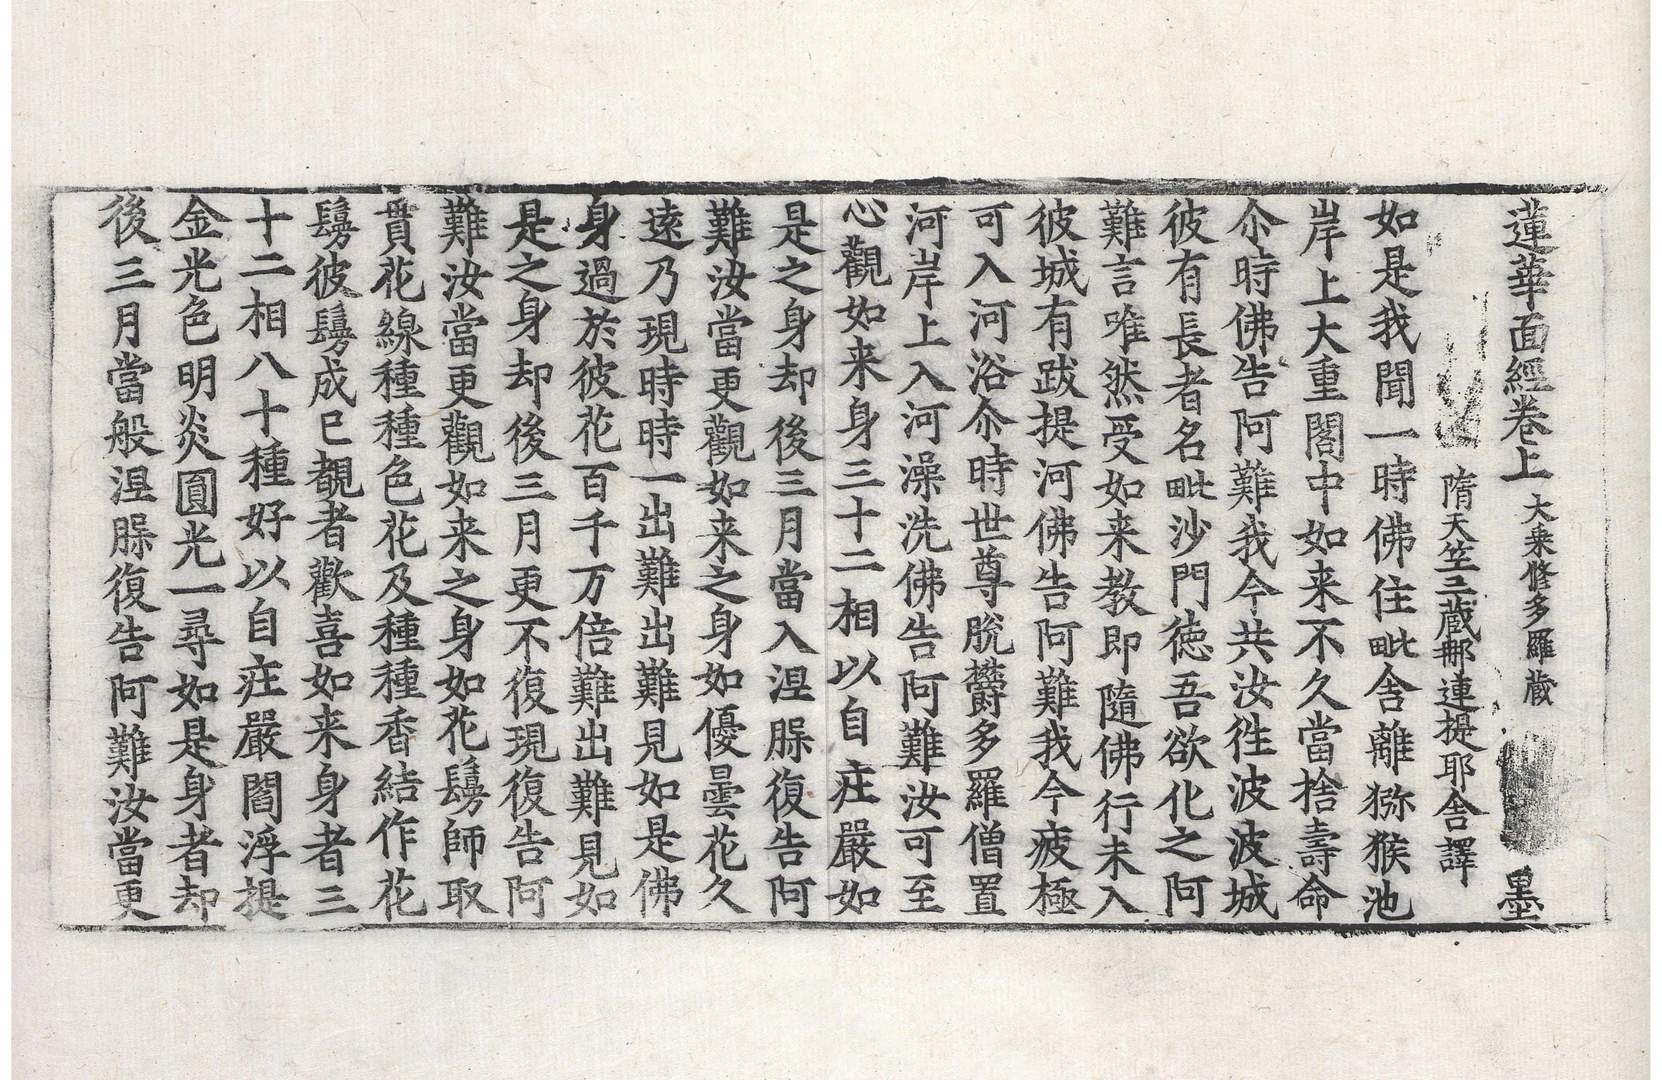 蓮華面經卷上 大乗修多羅蔵 墨
隋天竺三蔵郍連提耶舍譯
如是我聞一時佛住毗舍離猕猴池
岸上大重閣中如来不久當捨壽命
尒時佛告阿難我今共汝徃波波城
彼有長者名毗沙門徳吾欲化之阿
難言唯然受如来教即隨佛行未入
彼城有跋提河佛告阿難我今疲極
可入河浴尒時世尊脫欝多羅僧置
河岸上入河澡洗佛告阿難汝可至
心觀如来身三十二相以自庄嚴如
是之身却後三月當入涅槃復告阿
難汝當更觀如来之身如優曇花久
逺乃現時時一出難出難見如是佛
身過於彼花百千万倍難出難見如
是之身却後三月更不復現復告阿
難汝當更觀如来之身如花鬘師取
貫花線種種色花及種種香結作花
鬘彼鬘成已覩者歡喜如来身者三
十二相八十種好以自庄嚴閻浮提
金光色明炎圓光一尋如是身者却
後三月當般涅槃復告阿難汝當更